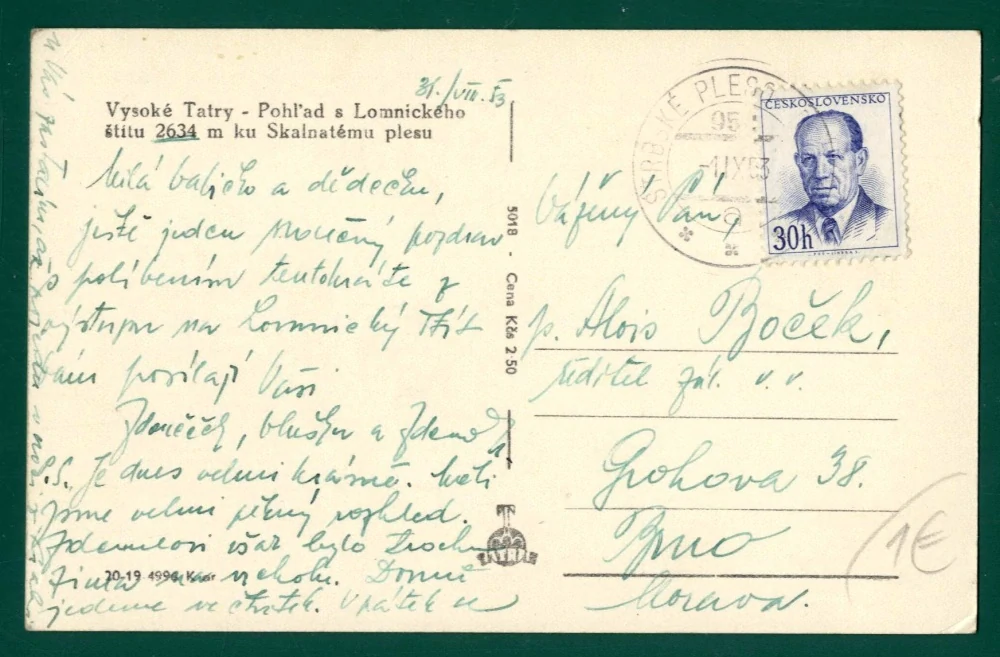 31./VIII.53
Vysoké Tatry - Pohľad s Lomnického
štítu 2634 m ku Skalnatému plesu
Milá babičko a dědečku,
ještě jeden srdečný pozdrav
s políbením tentokráte z
výstupu na Lomnický štít
Vám posílají Vaši
Zdeněček, a Zdeno
P.S. Je dnes velmi krásně. Měli
jsme velmi pěkný rozhled.
Zdeneckovi však bylo trochu
zima na vrcholu. Domů
jedeme ve čtvrtek. V pátek se
u Vás v
20-19 4996
5018 - Cena Kčs 2·50
TATRAN
ŠTRBSKÉ PLESO
95
-1.IX.53
ČESKOSLOVENSKO
30h
Vážený Pán,
p. Alois Boček,
ředitel v. v.
Grohova 38.
Brno
Morava.
1€